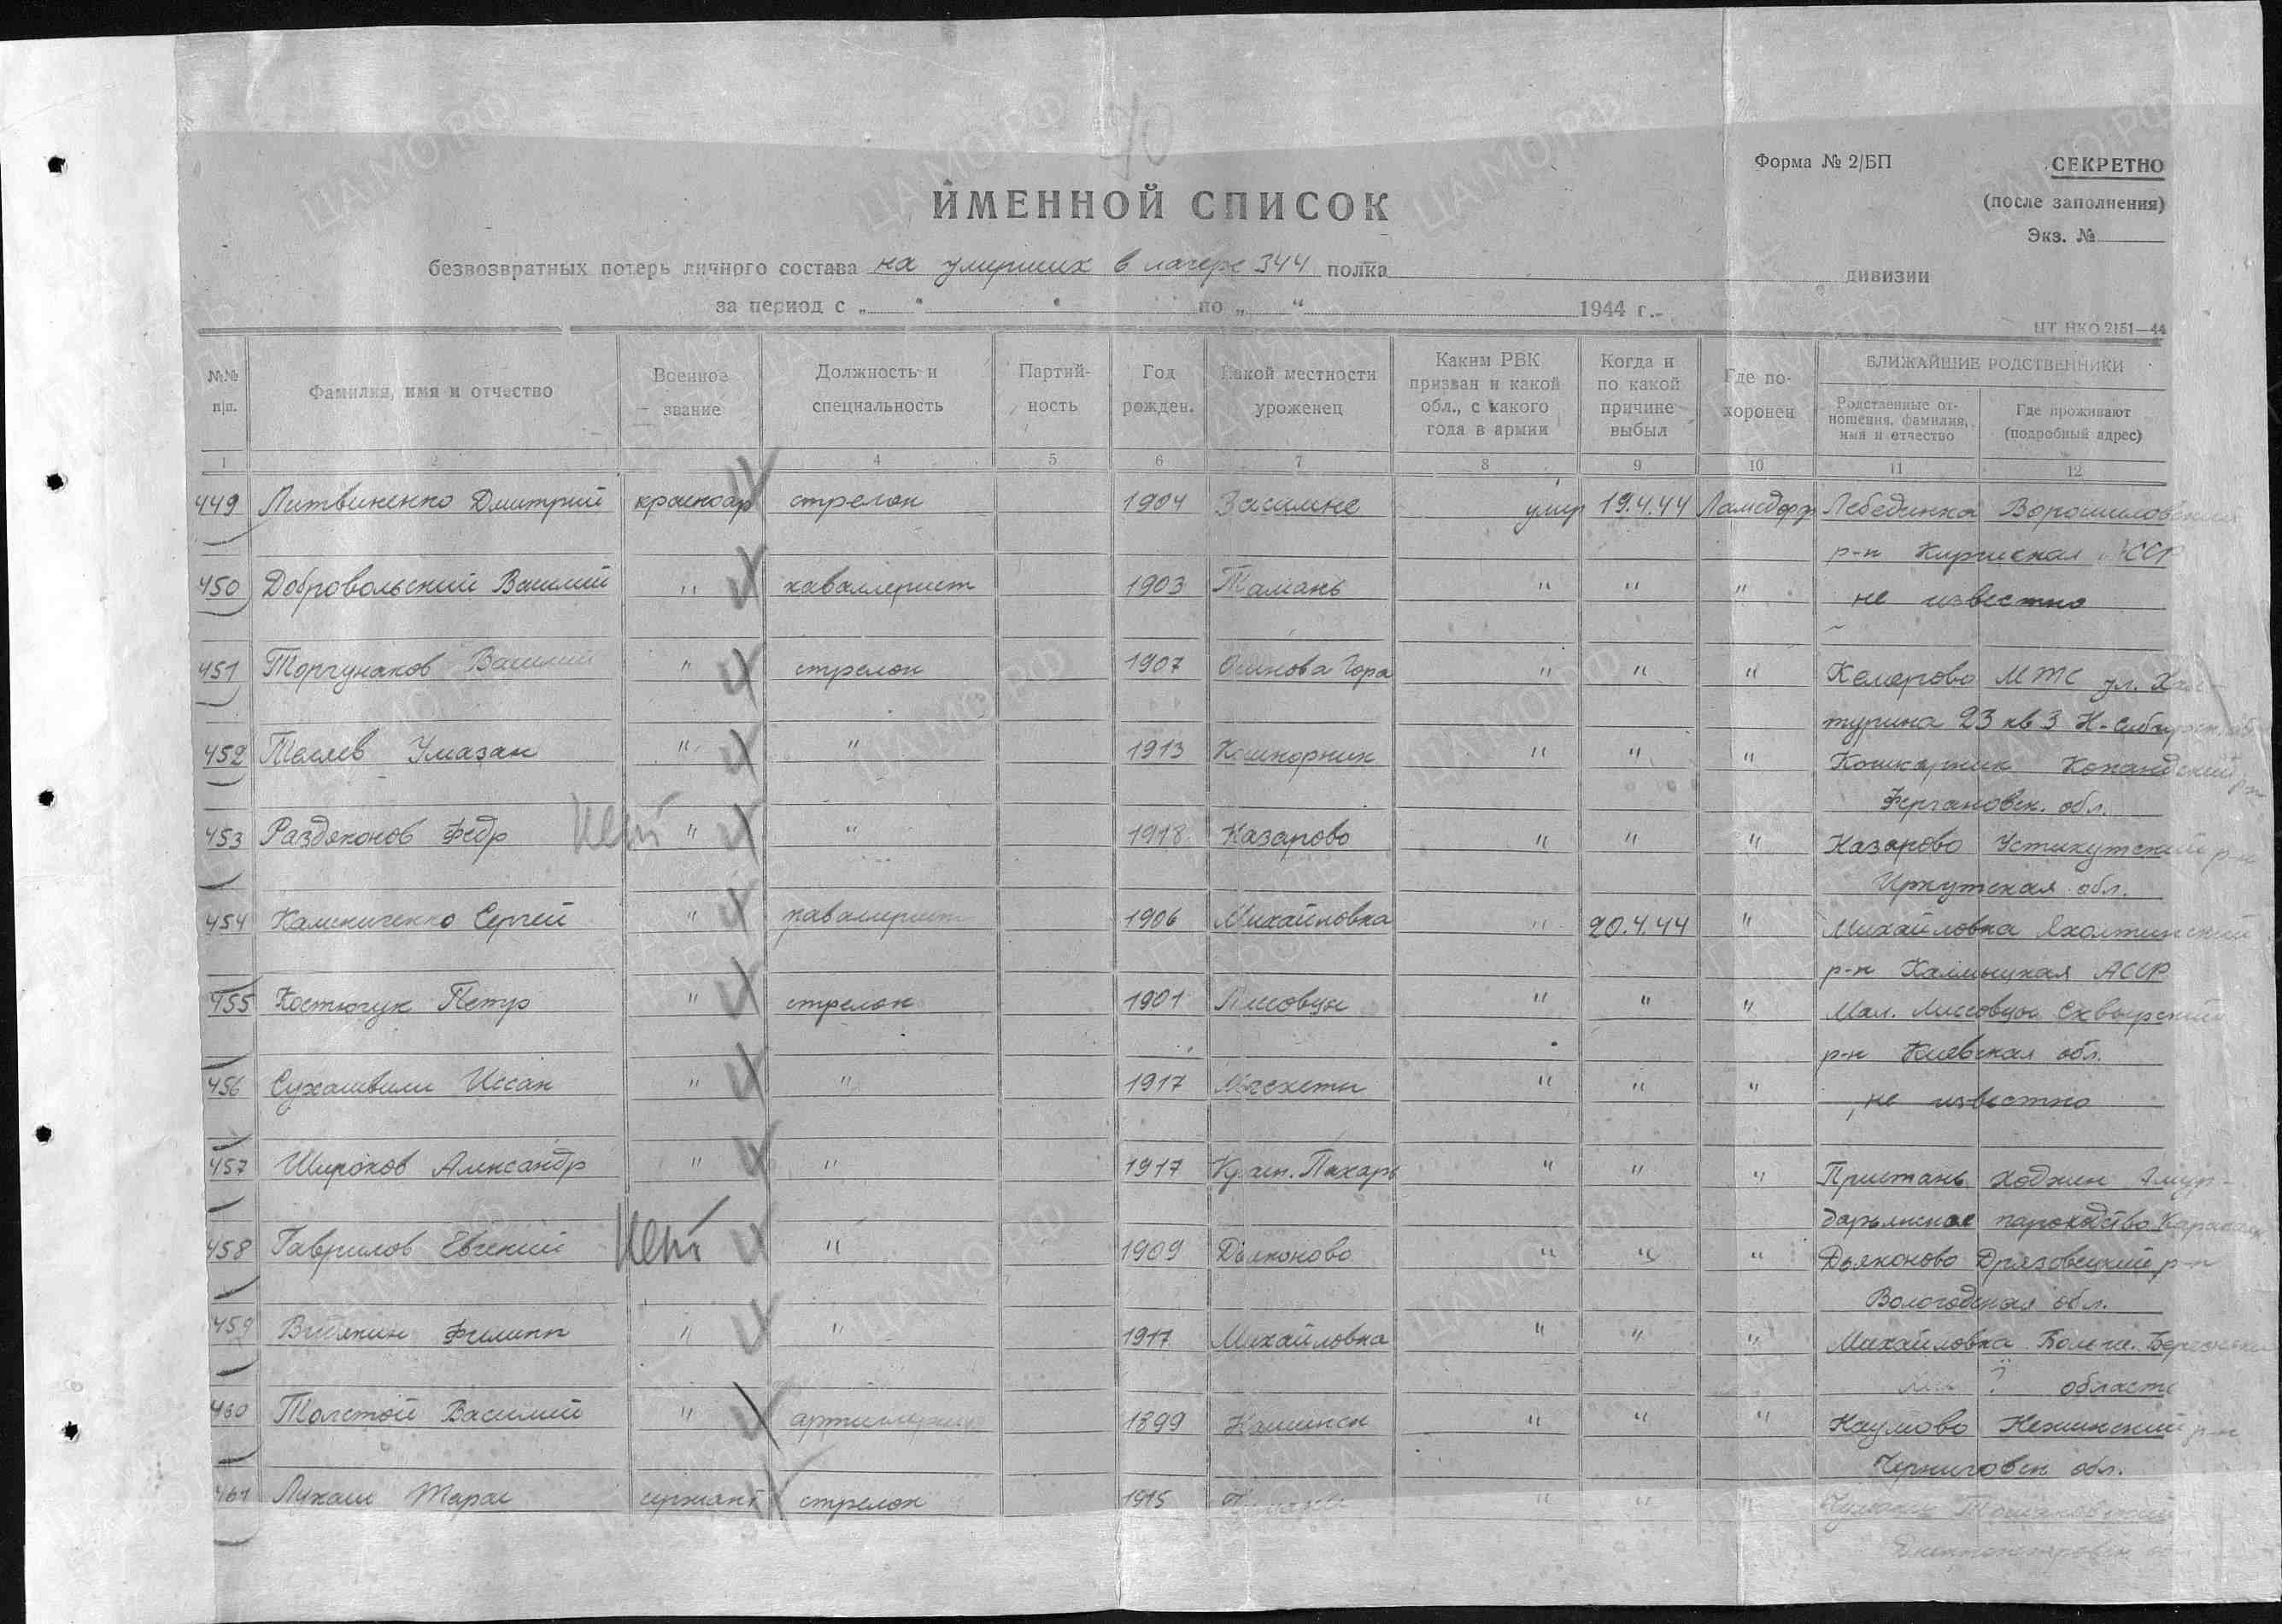 40
Форма № 2/БП
СЕКРЕТНО
(после заполнения)
Экз. №
ИМЕННОЙ СПИСОК
безвозвратных потерь личного состава на умерших в лагере 344 полка дивизии
за период с „ “ по „ “ 1944 г.
ЦТ НКО 2151—44
№№ п/п. Фамилия, имя и отчество Военное звание Должность и специальность Партийность Год рожден. Какой местности уроженец Каким РВК призван и какой обл., с какого года в армии Когда и по какой причине выбыл Где похоронен БЛИЖАЙШИЕ РОДСТВЕННИКИ
Родственные отношения, фамилия, имя и отчество Где проживают (подробный адрес)
1 2 4 5 6 7 8 9 10 11 12
449 Литвиненко Дмитрий красноар стрелок 1904 умер 19.4.44 Ламсдорф Лебединка Ворошиловский
р-н Киргиская ССР
450 Добровольский Василий " кавалерист 1903 Тамань " " " не известно
451 Торгунаков Василий " стрелок 1907 Осинова Гора " " " Кемерово МТС ул. Хал-
турина 23 кв 3 Н-Сибирск. обл
452 Теляев Умазан " " 1913 Кошкорник " " " Кошкарник Кокандский р-н
Фергановск. обл.
453 Раздяконов Федр " " 1918 Казарово " " " Казарово Устикутский р-н
Иркутская обл.
454 Камениченко Сергей " кавалерист 1906 Михайловка " 20.4.44 " Михайловка Яхолтинский
р-н Калмыцкая АССР
455 Костючук Петр " стрелок 1901 Лисовцы " " " Мал. Лисовцы Сквырский
р-н Киевская обл.
456 Сухашвили Иссак " " 1917 " " " не известно
457 Широков Александр " " 1917 Красн. Пахарь " " " Пристань Ходжи Амур-
дарьинское пароходство
458 Гаврилов Евгений " " 1909 Дьяконово " " " Дьяконово Дрязовецкий р-н
Вологодская обл.
459 Филипп " " 1917 Михайловка " " " Михайловка Больше.
? область
460 Толстой Василий " артиллерист 1899 Каминск " " " Наумово Нежинский р-н
Черниговск обл.
461 Лукаш Тарас сержант стрелок 1915 " " "
Днепропетровск обл